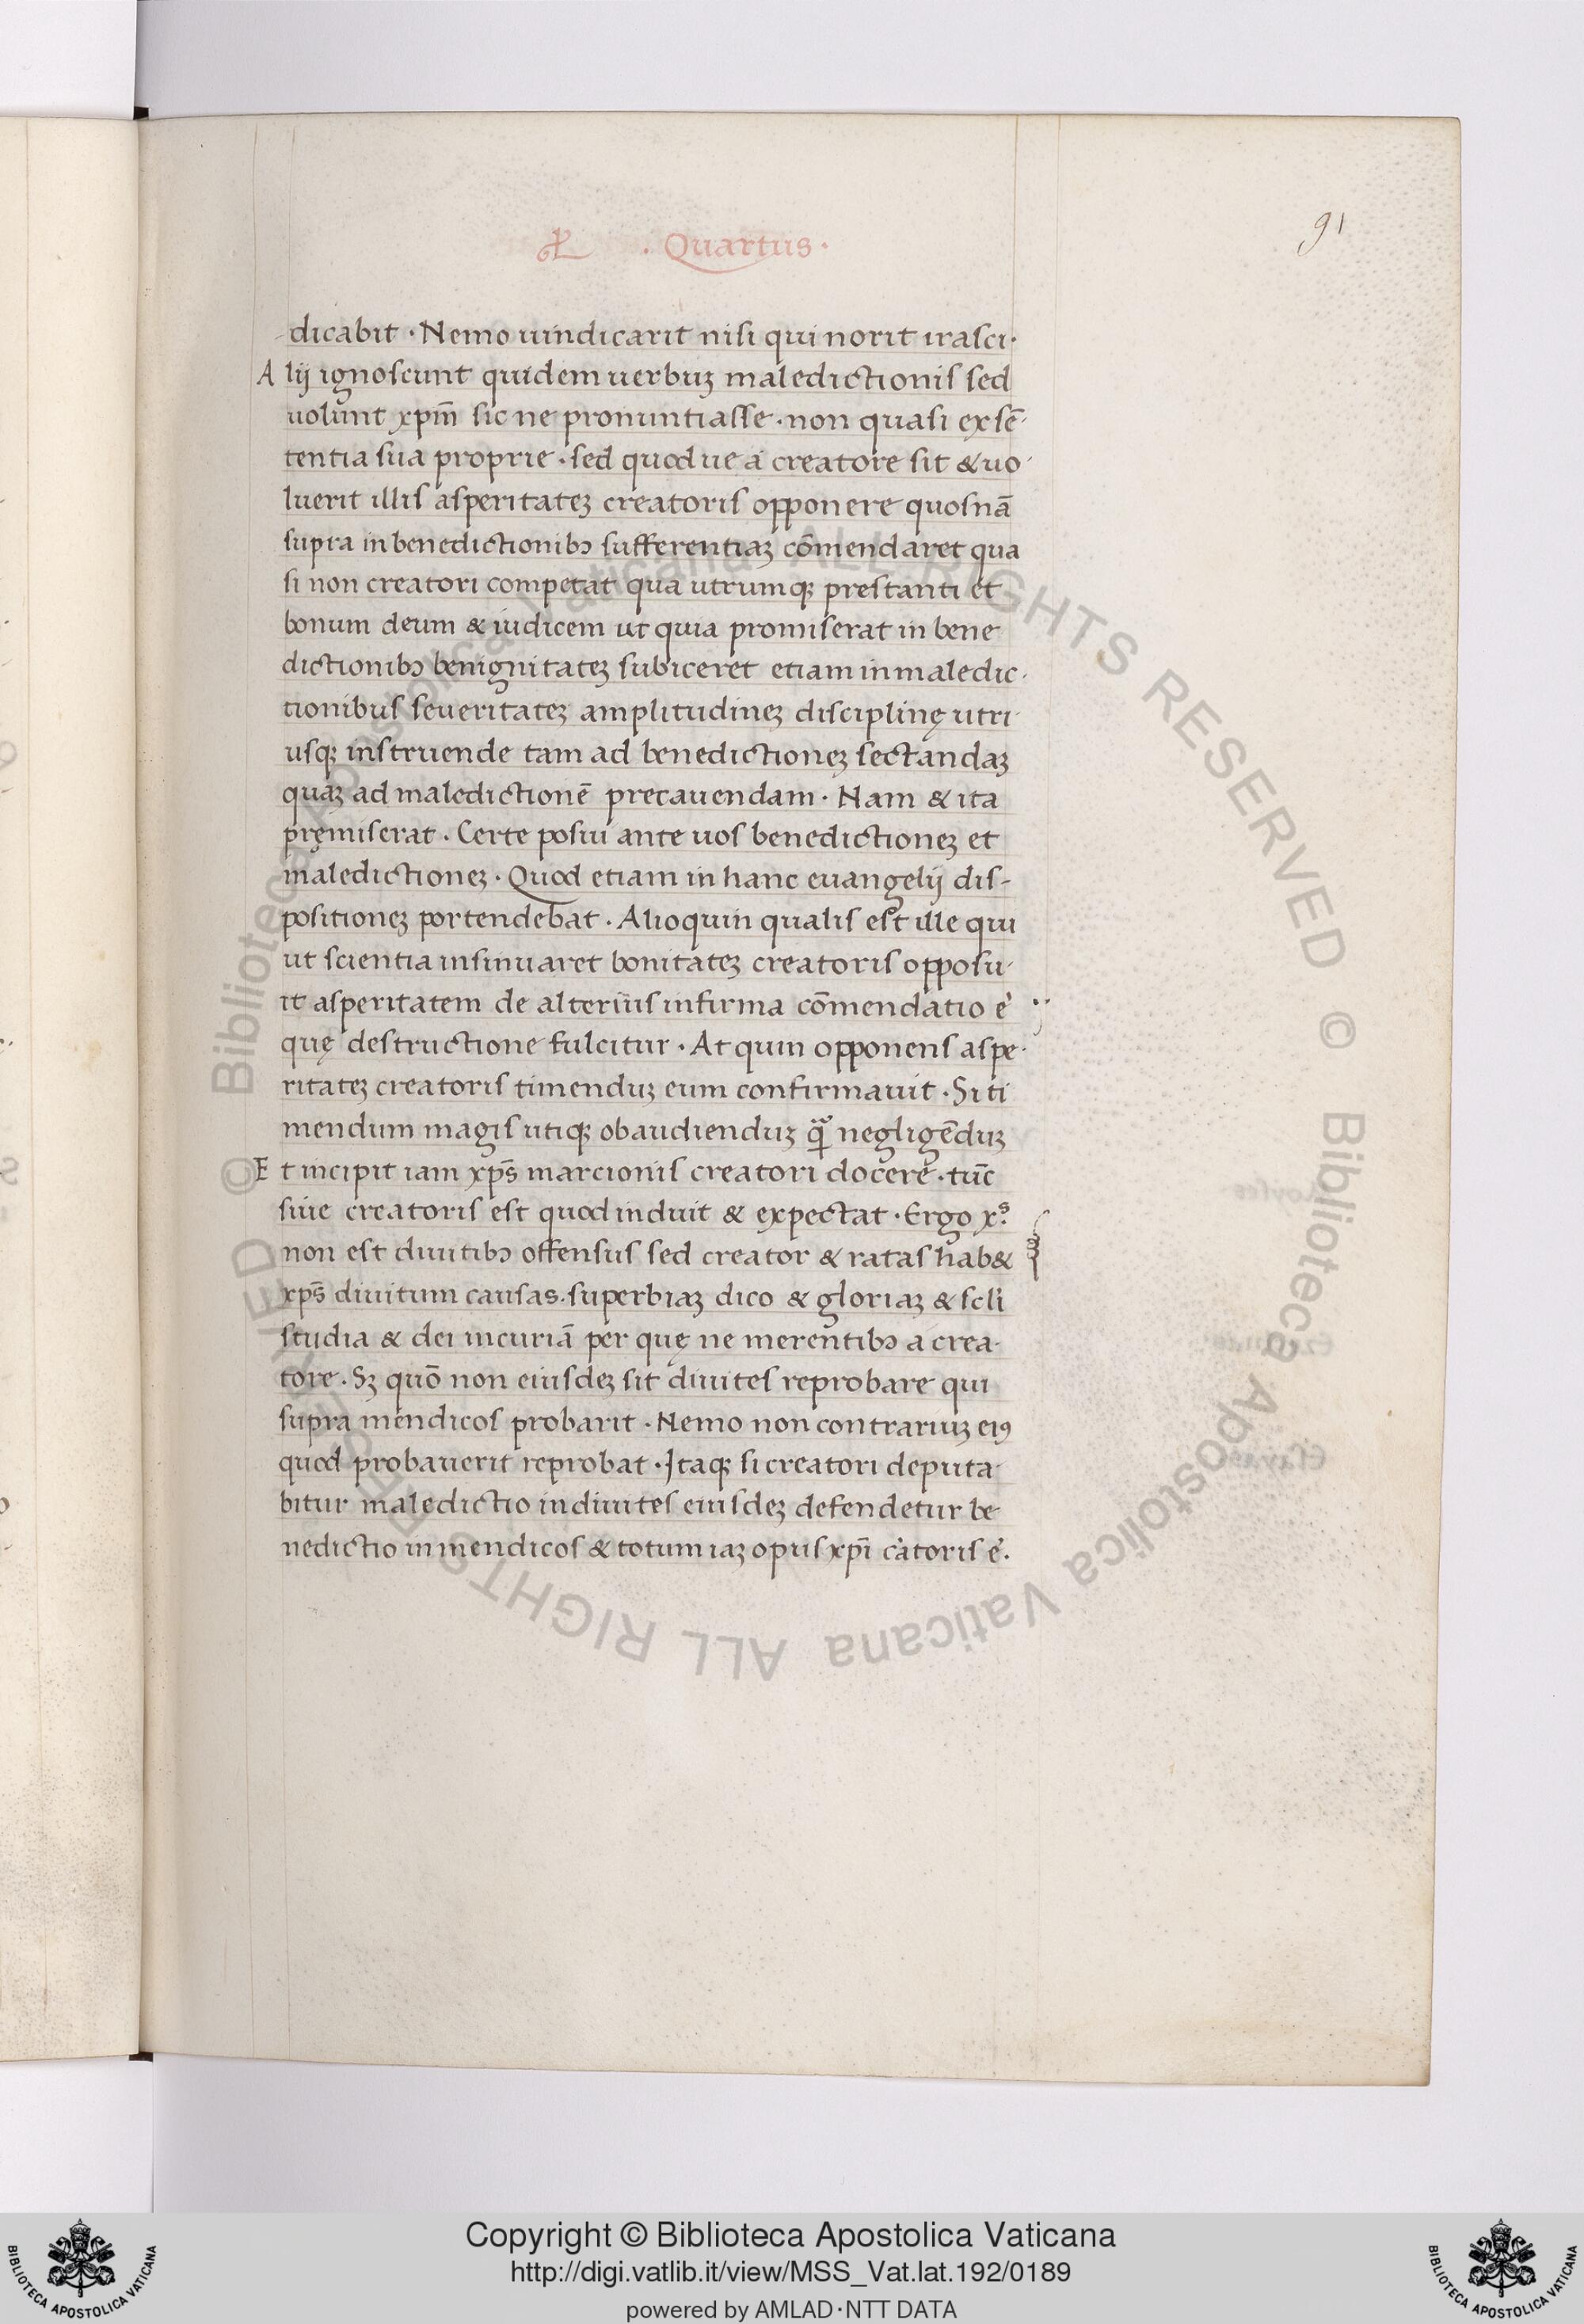 . Quartus .
91
dicabit . Nemo uindicarit nisi qui norit irasci .
Alij ignoscunt quidem uerbuꝫ maledictionis sed
uolunt xp̄m sic ne pronuntiasse . non quasi ex sē-
tentia sua proprie . sed quod ue a creatore sit & uo-
luerit illis asperitateꝫ creatoris opponere quos nā
supra in benedictionibꝰ sufferentiaꝫ cōmendaret qua
si non creatori competat qua utrumqꝫ prestanti et
bonum deum & iudicem ut quia promiserat in bene
dictionibꝰ benignitateꝫ subiceret etiam in maledic-
tionibus seueritateꝫ amplitudineꝫ disciplinę utri-
usqꝫ instruende tam ad benedictioneꝫ sectandaꝫ
quaꝫ ad maledictionē precauendam . Nam & ita
pręmiserat . Certe posui ante uos benedictioneꝫ et
maledictioneꝫ . Quod etiam in hanc euangelij dis-
positioneꝫ portendebat . Alioquin qualis est ille qui
ut scientia insinuaret bonitateꝫ creatoris opposu-
it asperitatem de alterius infirma cōmendatio ē
quę destructione fulcitur . At quin opponens aspe-
ritateꝫ creatoris timenduꝫ eum confirmauit . Si ti
mendum magis utiqꝫ obaudienduꝫ qͣ negligēduꝫ
Et incipit iam xp̄s marcionis creatori docere . tūc
siue creatoris est quod induit & expectat . Ergo x.ˢ
non est diuitibꝰ offensus sed creator & ratas hab&
xp̄s diuitum causas . superbiaꝫ dico & gloriaꝫ & scl̄i
studia & dei incuriā per quę ne merentibꝰ a crea-
tore . Sꝫ quō non eiusdeꝫ sit diuites reprobare qui
supra mendicos probarit . Nemo non contrariuꝫ eiꝰ
quod probauerit reprobat . Itaqꝫ si creatori deputa-
bitur maledictio in diuites eiusdeꝫ defendetur be
nedictio in mendicos & totum iaꝫ opus xp̄i c̄atoris ē .
© Biblioteca Apostolica Vaticana ALL RIGHTS RESERVED © Biblioteca Apostolica Vaticana ALL RIGHTS RESERVED
Copyright © Biblioteca Apostolica Vaticana
http://digi.vatlib.it/view/MSS_Vat.lat.192/0189
powered by AMLAD·NTT DATA
BIBLIOTECA APOSTOLICA VATICANA
BIBLIOTECA APOSTOLICA VATICANA